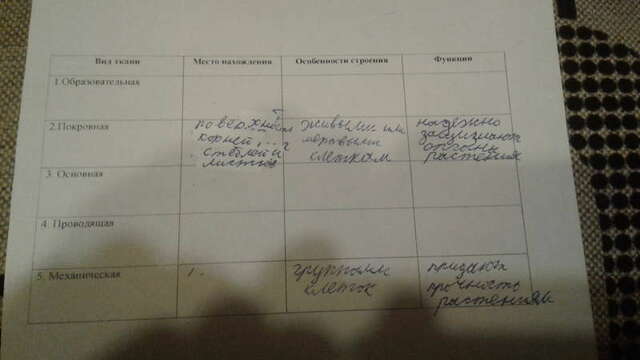 Вид ткани Место нахождения Особенности строения Функции
1.Образовательная
2.Покровная
поверхность
корней,
стеблей и
листьев
живыми или
мертвыми
клеткам
надежно
защищают
органы
растения
3. Основная
4. Проводящая
5. Механическая
1.
группами
клеток
придают
прочность
растениям